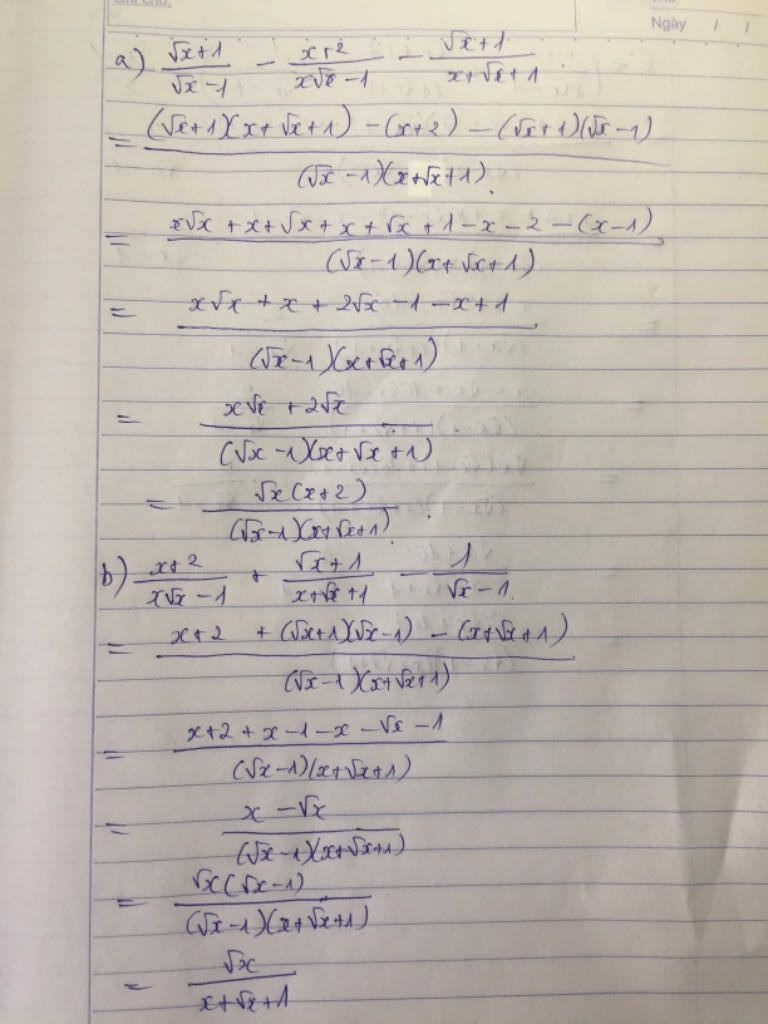 Ngày / /
a) (√x+1)/(√x-1) - (x+2)/(x√x-1) - (√x+1)/(x+√x+1).
= ((√x+1)(x+√x+1) - (x+2) - (√x+1)(√x-1))/((√x-1)(x+√x+1)).
= (x√x + x + √x + x + √x + 1 - x - 2 - (x-1))/((√x-1)(x+√x+1))
= (x√x + x + 2√x - 1 - x + 1)/((√x-1)(x+√x+1))
= (x√x + 2√x)/((√x-1)(x+√x+1))
= (√x(x+2))/((√x-1)(x+√x+1)).
b) (x+2)/(x√x-1) + (√x+1)/(x+√x+1) - 1/(√x-1).
= (x+2 + (√x+1)(√x-1) - (x+√x+1))/((√x-1)(x+√x+1))
= (x+2+x-1-x-√x-1)/((√x-1)(x+√x+1))
= (x-√x)/((√x-1)(x+√x+1))
= (√x(√x-1))/((√x-1)(x+√x+1))
= √x/(x+√x+1)